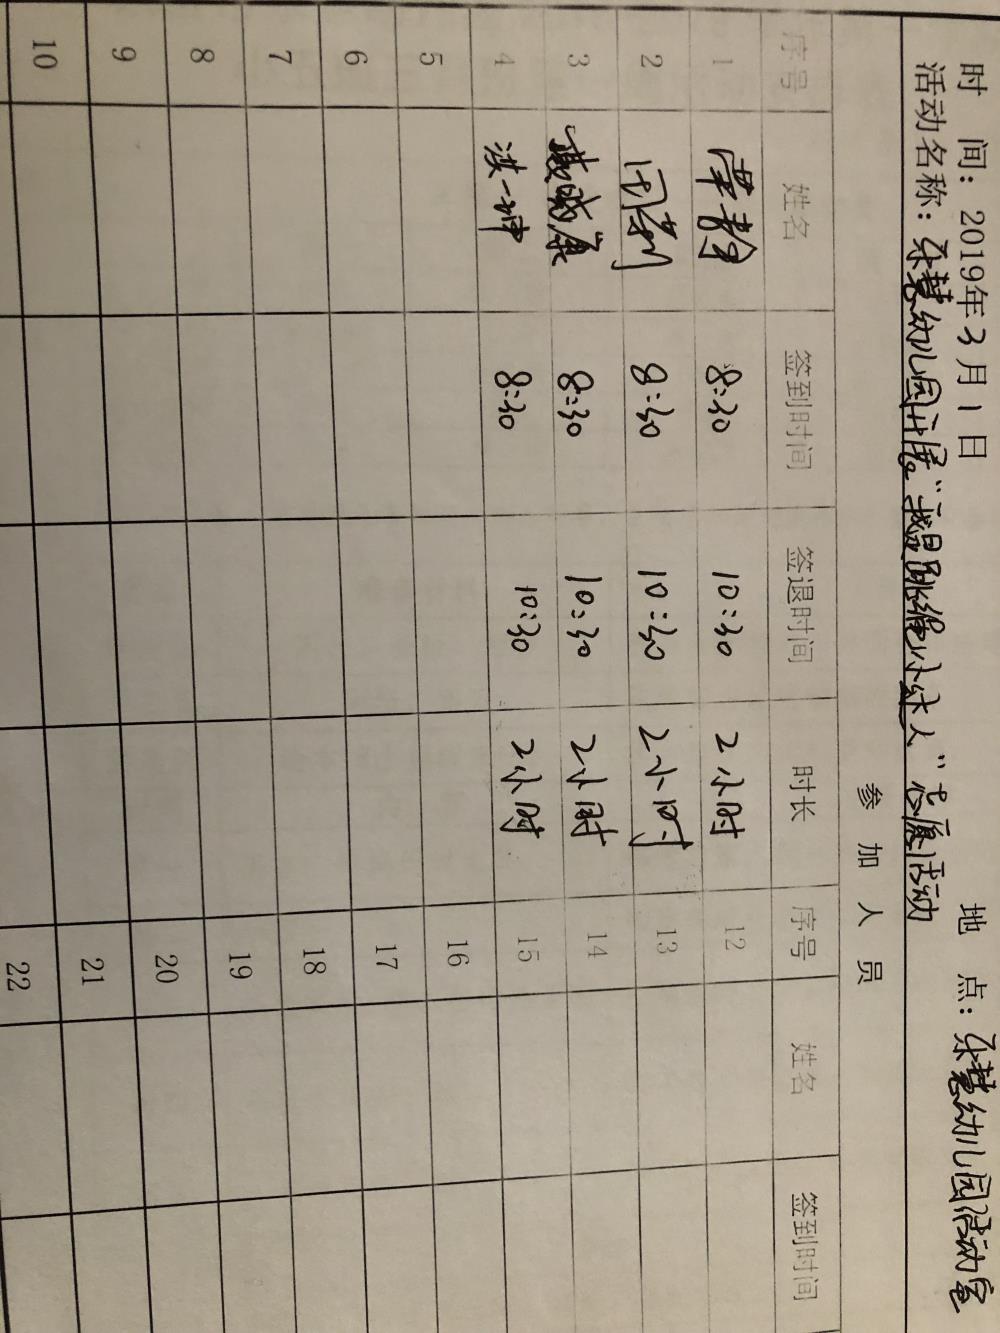 时 间: 2019年3月1日 地 点: 乐慧幼儿园活动室
活动名称: 乐慧幼儿园开展"我是跳绳小达人"志愿活动
参加人员
序号 姓名 签到时间 签退时间 时长 序号 姓名 签到时间
1 8:30 10:30 2小时 12
2 8:30 10:30 2小时 13
3 8:30 10:30 2小时 14
4 洪一坤 8:30 10:30 2小时 15
5 16
6 17
7 18
8 19
9 20
10 21
22